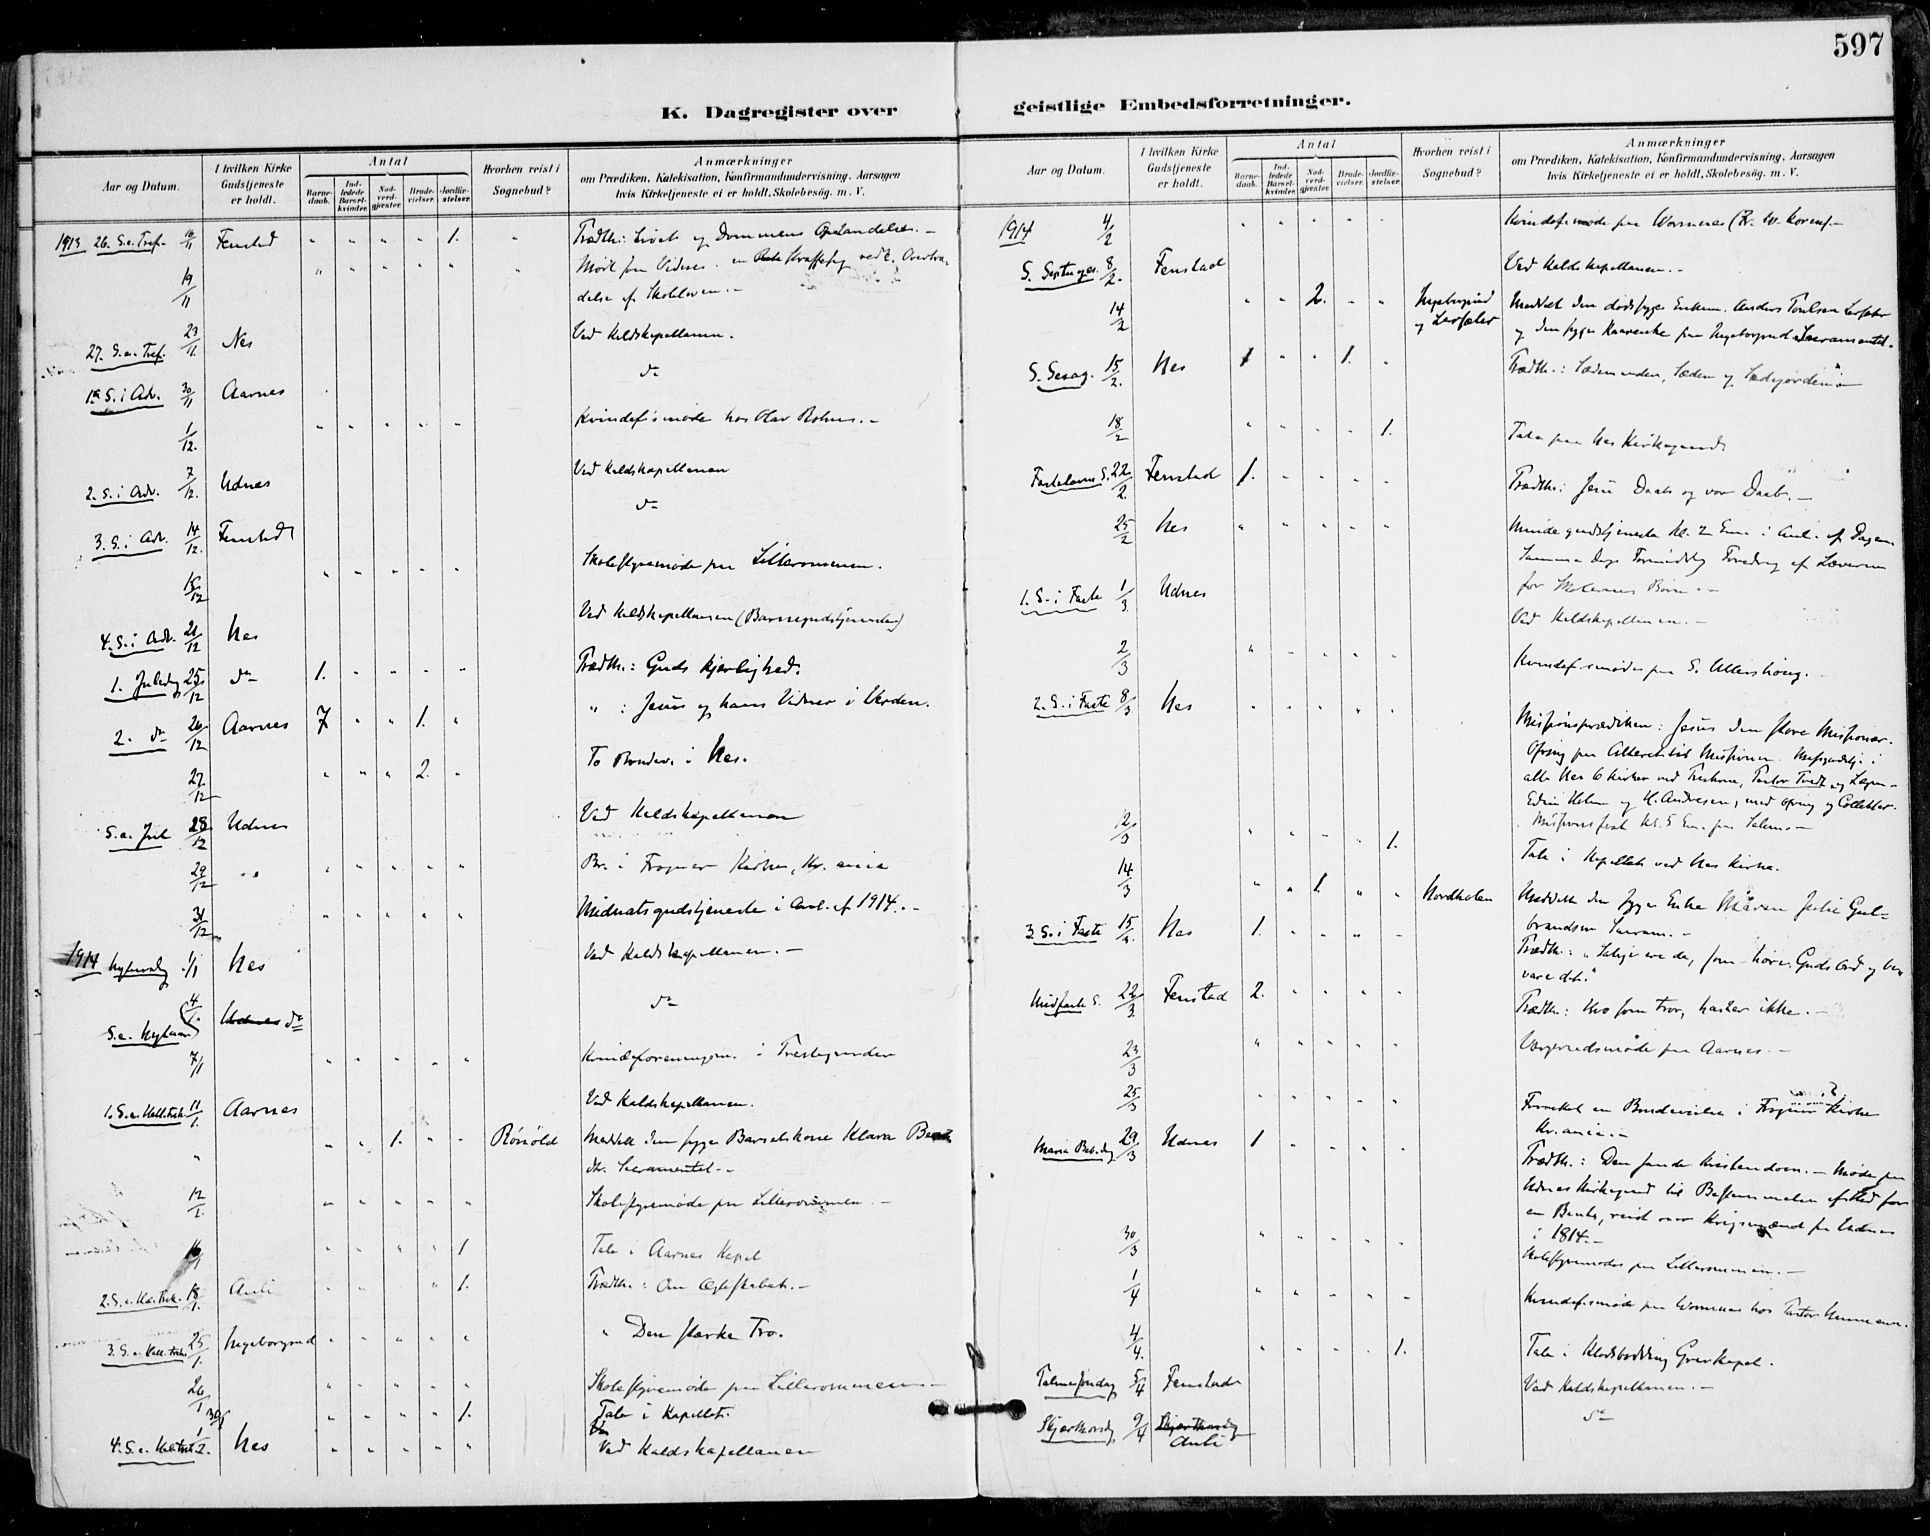 597
K. Dagregister over
geistlige Embedsforretninger.
Aar og Datum.
I hvilken Kirke Gudstjeneste er holdt.
Antal
Barne-daab.
Ind-ledede Barsel-kvinder.
Nad-verd-gjæster.
Brude-vielser.
Jordfæ-stelser.
Hvorhen reist i Sognebud?
Anmærkninger
om Prædiken, Katekisation, Konfirmandundervisning, Aarsagen
hvis Kirketjeneste ei er holdt, Skolebesøg. m. V.
1913 26. S.e. Tref. 16/11 Fenstad " " " " 1. " Prædk.: Livets og Dommens
19/11 " " " " " " Mødt som Vidne i en Straffesag vedk. Overtræ-
delse af Skoleloven.-
27. S.e. Tref. 23/11 Nes Ved Kaldskapellanen.
1ste S. i Adv. 30/11 Aarnes do
1/12. " " " " " Kvindef.smøde hos Olav .-
2. S. i Adv. 7/12. Udnes Ved Kaldskapellanen
3. S. i Adv. 14/12. Fenstad do
15/12 " " " " " Skolestyremøde paa Lilleromunen.
4. S. i Adv. 21/12 Nes Ved Kaldskapellanen (Barnegudstjeneste)
1. Juledag 25/12 do 1. " " " " Prædk.: Guds Kjærlighed.
2. do 26/12 Aarnes 7 " " 1. " " : Jesus og hans Vidner i Verden.
27/12 " " " 2. " To Brudev. i Nes.
S.e. Jul 28/12 Udnes Ved Kaldskapellanen
29/12 " " " " " " Br. i Frogner Kirke, Kr.ania
31/12 " " " " " Midnatsgudstjeneste i Anl. af 1914.-
1914 Nytaarsdag 1/1 Nes Ved Kaldskapellanen.-
S.e. Nytaar 4/1. Udnes do do
7/1 " " " " " Kvindeforeningen i
1. S.e. Hell.trek. 11/1. Aarnes Ved Kaldskapellanen.
" " " 1. " " Rønold Meddelt den syge Barselskone Klara
Sacramentet.-
12/1. " " " " " Skolestyremøde paa Lilleromunen.-
16/1 " " " " 1 Tale i Aarnes Kapel
2. S.e. H.trek. 18/1. Auli " " " 1. Prædk.: Om Ægteskabet.-
3. S.e. Hell.trek. 25/1. Ingeborgrud " " " " " " Den stærke Tro.
26/1 " " " " " Skolestyremøde paa Lilleromunen.-
30/1 " " " " 1. Tale i Kapellet.
4. S.e. Hell.trek. 1/2. Nes " " " " " Ved Kaldskapellanen
Aar og Datum.
I hvilken Kirke Gudstjeneste er holdt.
Antal
Barne-daab.
Ind-ledede Barsel-kvinder.
Nad-verd-gjæster.
Brude-vielser.
Jordfæ-stelser.
Hvorhen reist i Sognebud?
Anmærkninger
om Prædiken, Katekisation, Konfirmandundervisning, Aarsagen
hvis Kirketjeneste ei er holdt, Skolebesøg. m. V.
1914 4/2 " " " " " Kvindef.møde paa Wormnes
S. Septuages. 8/2. Fenstad Ved Kaldskapellanen.-
14/2 " " 2. " " Ingeborgrud Meddelt den dødssyge Enkem. Anders
og den syge paa Ingeborgrud Sacramentet.
S. Sexag. 15/2. Nes 1 " " 1. " Prædk.: Sædemanden, Sæden og Sædejorden.
18/2 " " " " 1. Tale paa Nes Kirkegaard
Fastelavns S. 22/2. Fenstad 1. " " " " Prædk.: Jesu Daab og vor Daab.-
25/2 Nes " " " " " Mindegudstjeneste Kl. 2 Em. i Anl. af Dagen.
Samme Dags Formiddag Foredrag af Læreren
for Skolernes Børn.-
1. S. i Faste 1/3 Udnes Ved Kaldskapellanen.-
2/3 " " " " " Kvindef.smøde paa S.
2. S. i Faste 8/3 Nes " " " " " Missionsprædiken: Jesus den store Missionær.
Ofring paa Alteret til Missionen.
alle Nes 6 Kirker ved Pastor og
og H. Andresen, med Ofring og Collekter.
Missionsfest Kl. 5 Em. paa Salem.-
12/3 " " " " 1. Tale i Kapellet ved Nes Kirke.
14/3 " " 1. " " Nordholen Meddelt den syge Enke Maren Julie Gul-
brandsen Sacram.-
3. S. i Faste 15/3. Nes 1. " " " " Prædk.: "Salige ere de, som høre Guds Ord og be-
vare det."
Midfaste S. 22/3. Fenstad 2. " " " " Prædk.: Hvo som tror, haster ikke.-
23/3 " " " " " Vergeraadsmøde paa Aarnes.-
25/3 " " " " " Forrettet en Brudevielse i Frogner Kirke
Kr.ania.-
Maria Beb.dag 29/3 Udnes 1 " " " " Prædk.: Den sande Kristendom.- Møde paa
Udnes Kirkegaard til Bestemmelse af Sted for
en Bauta, reist over Krigsmænd fra Udnes
i 1814.-
30/3 " " " " " Skolestyremøde paa Lilleromunen.-
1/4 " " " " " Kvindef.smøde paa Wormnes hos Pastor
4/4. " " " " 1. Tale i Gravkapel.
Palmesøndag 5/4 Fenstad Ved Kaldskapellanen.-
Skjærthorsdag 9/4 Skjærthorsdag Auli do